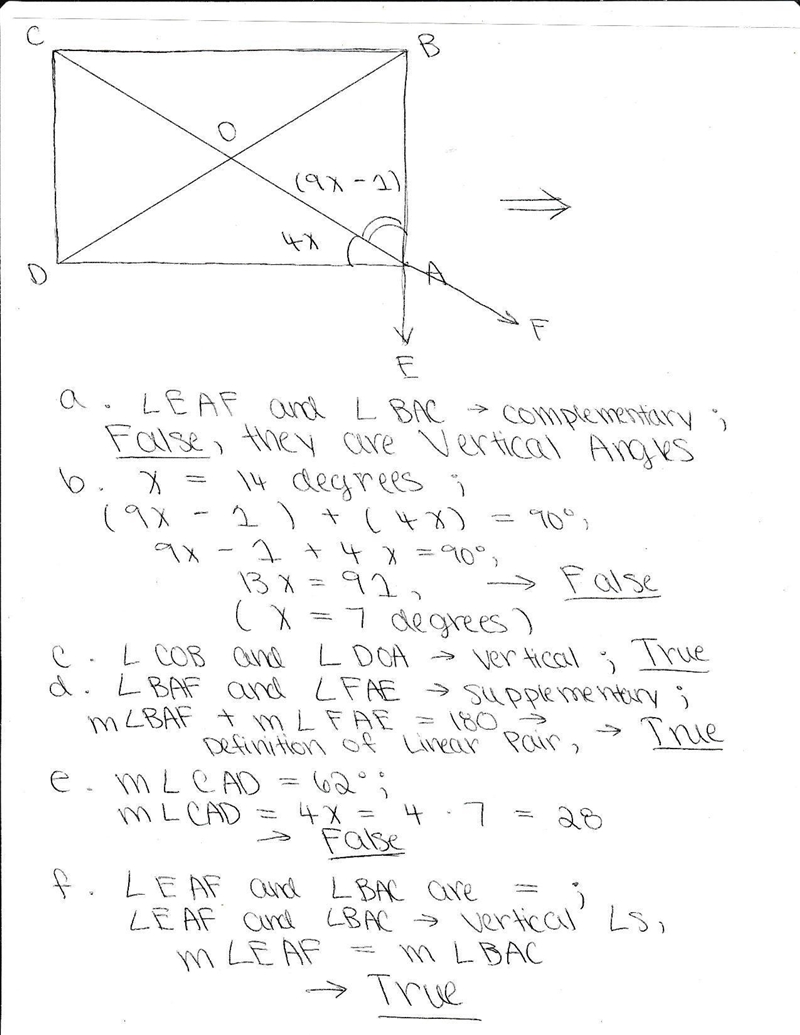 C
B
O
(9x - 1)
4x
⇒
D
A
F
E
a. ∠EAF and ∠BAC → complementary ;
False, they are Vertical Angles
b. x = 14 degrees ;
(9x - 1) + (4x) = 90°,
9x - 1 + 4x = 90°,
13x = 91, → False
(x = 7 degrees)
c. ∠COB and ∠DOA → vertical ; True
d. ∠BAF and ∠FAE → supplementary ;
m∠BAF + m∠FAE = 180 →
Definition of Linear Pair, → True
e. m∠CAD = 62° ;
m∠CAD = 4x = 4 · 7 = 28
→ False
f. ∠EAF and ∠BAC are = ;
∠EAF and ∠BAC → vertical ∠s,
m∠EAF = m∠BAC
→ True